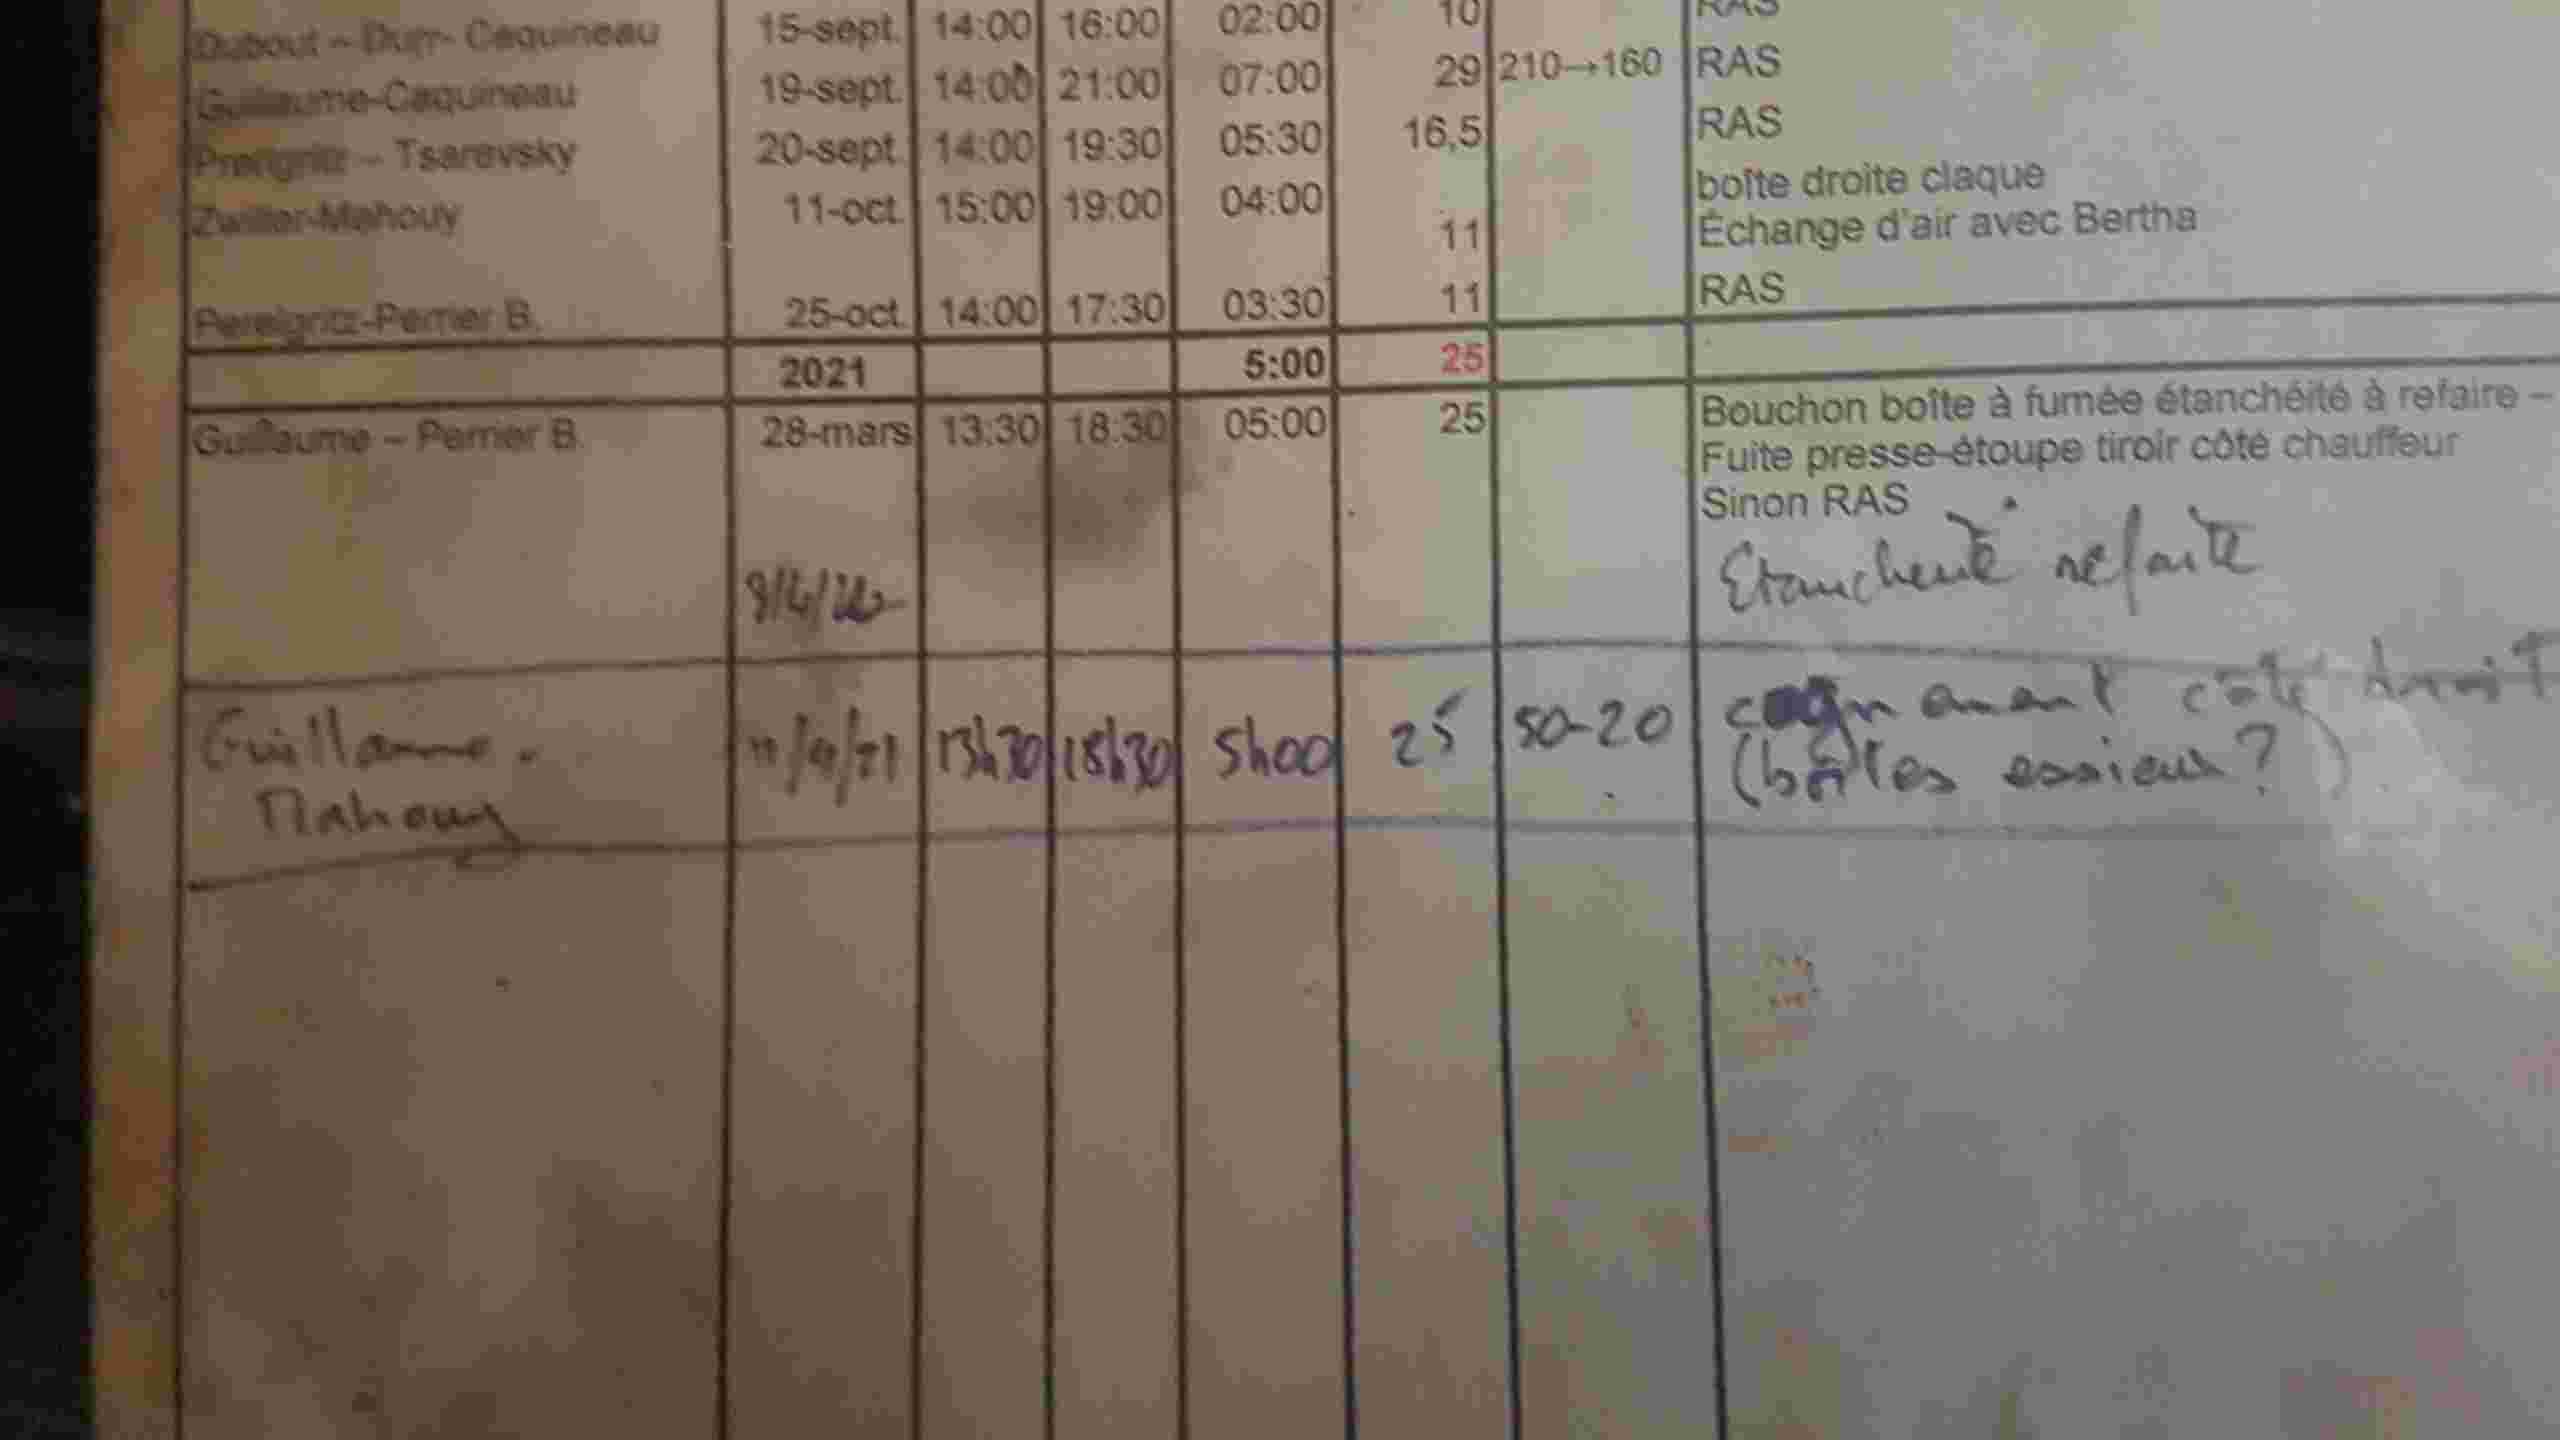 Dubout – Durr- Caquineau 15-sept. 14:00 16:00 02:00 10 RAS
Guillaume-Caquineau 19-sept. 14:00 21:00 07:00 29 210→160 RAS
Prerigritz – Tsarevsky 20-sept. 14:00 19:30 05:30 16,5 RAS
Zwiller-Mahouy 11-oct. 15:00 19:00 04:00 11 boîte droite claque
Échange d'air avec Bertha
Pereigritz-Perrier B. 25-oct. 14:00 17:30 03:30 11 RAS
2021 5:00 25
Guillaume – Perrier B. 28-mars 13:30 18:30 05:00 25 Bouchon boîte à fumée étanchéité à refaire –
Fuite presse-étoupe tiroir côté chauffeur
Sinon RAS
Etancheité refaite
Guillaume - 13h30 18h30 5h00 25 50-20 cognement côté droit
Mahouy (boîtes essieux ?)